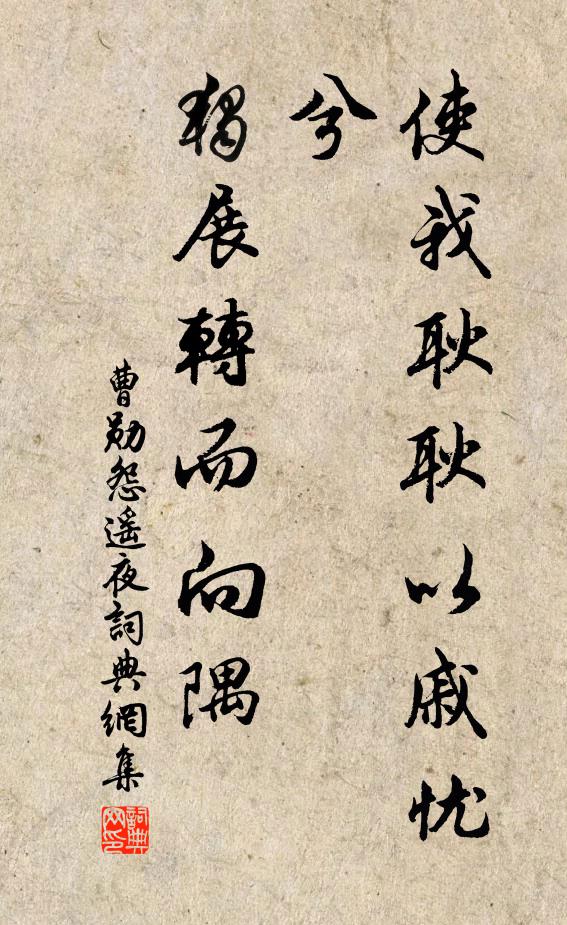 使我耿耿以戚忧
兮
独展轉而向隅
曹勛怨遥夜詞典網集
詞典
网印